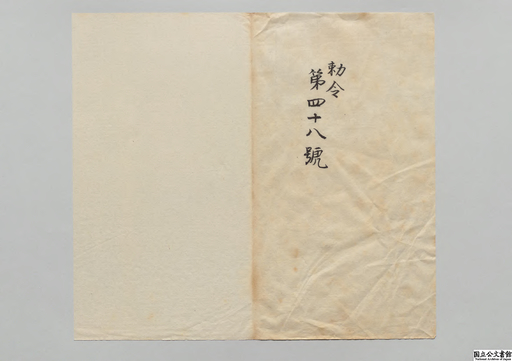 勅令
第四十八號
国立公文書館
National Archives of Japan